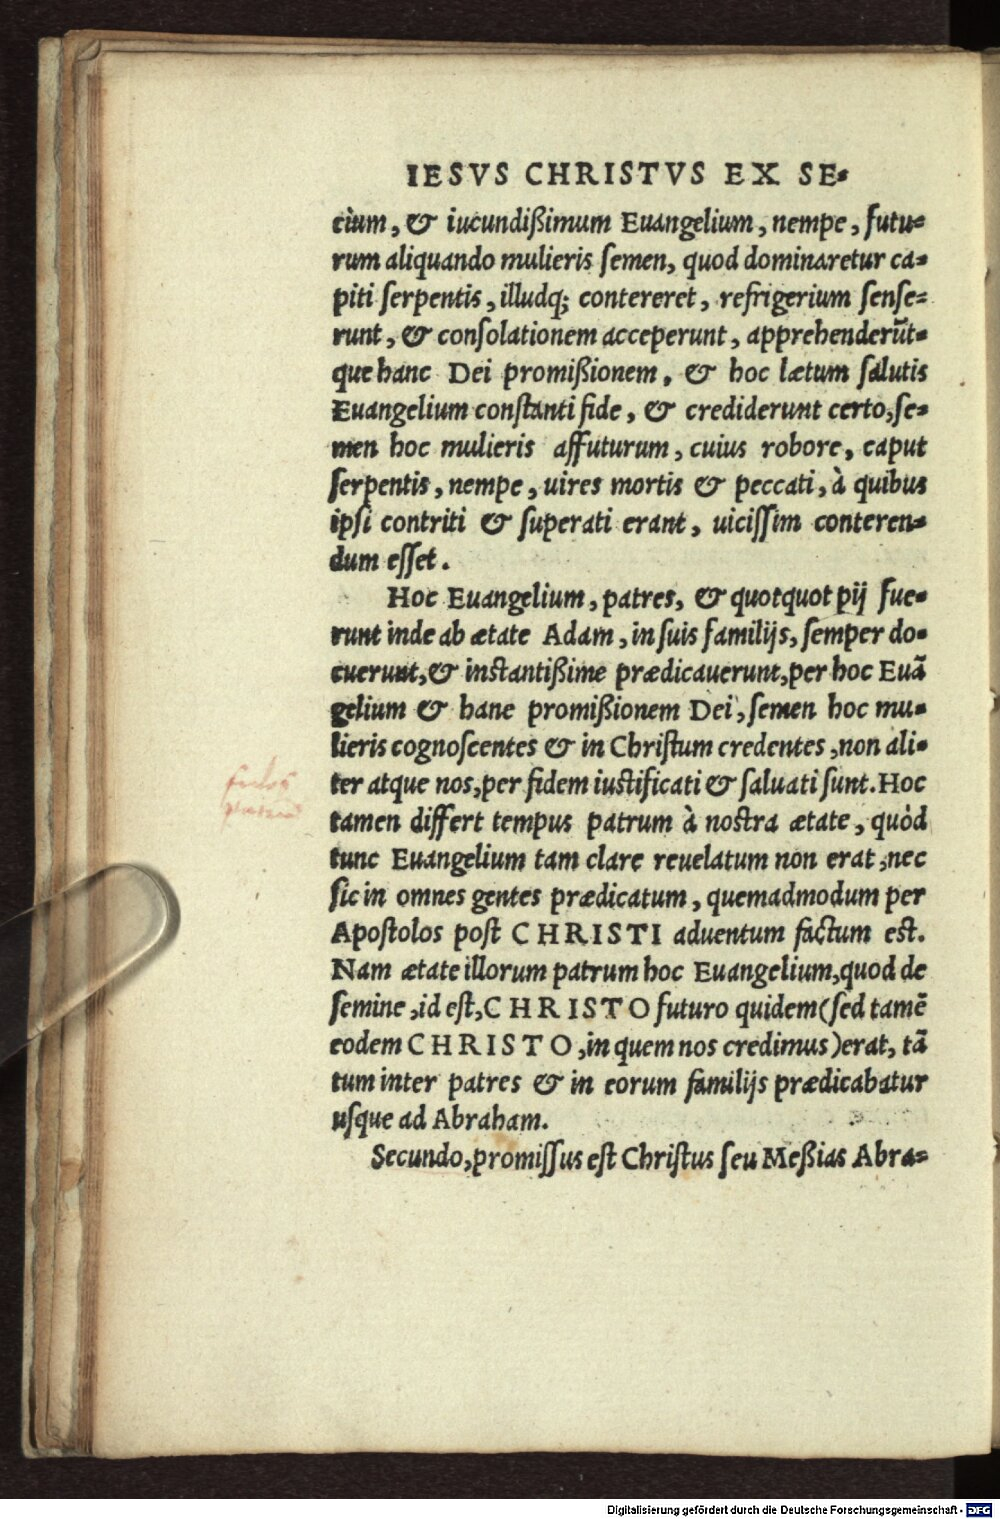 IESVS CHRISTVS EX SE-
ciùm, & iucundißimum Euangelium, nempe, futu-
rum aliquando mulieris semen, quod dominaretur ca-
piti serpentis, illudq; contereret, refrigerium sense-
runt, & consolationem acceperunt, apprehenderũt-
que hanc Dei promißionem, & hoc lætum salutis
Euangelium constanti fide, & crediderunt certo, se-
men hoc mulieris affuturum, cuius robore, caput
serpentis, nempe, uires mortis & peccati, à quibus
ipsi contriti & superati erant, uicissim conteren-
dum esset.
Hoc Euangelium, patres, & quotquot pij fue-
runt inde ab ætate Adam, in suis familijs, semper do-
cuerunt, & instantißime prædicauerunt, per hoc Euã
gelium & hanc promißionem Dei, semen hoc mu-
lieris cognoscentes & in Christum credentes, non ali-
ter atque nos, per fidem iustificati & saluati sunt. Hoc
tamen differt tempus patrum à nostra ætate, quòd
tunc Euangelium tam clare reuelatum non erat, nec
sic in omnes gentes prædicatum, quemadmodum per
Apostolos post CHRISTI aduentum factum est.
Nam ætate illorum patrum hoc Euangelium, quod de
semine, id est, CHRISTO futuro quidem (sed tamẽ
eodem CHRISTO, in quem nos credimus) erat, tã
tum inter patres & in eorum familijs prædicabatur
usque ad Abraham.
Secundo, promissus est Christus seu Meßias Abra-
Digitalisierung gefördert durch die Deutsche Forschungsgemeinschaft - DFG